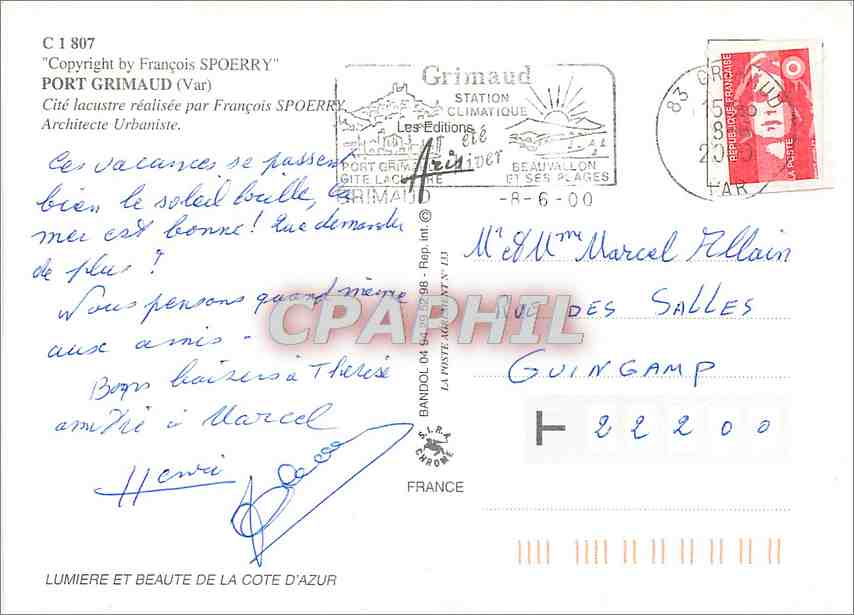 C 1 807
"Copyright by François SPOERRY"
PORT GRIMAUD (Var)
Cité lacustre réalisée par François SPOERRY
Architecte Urbaniste.
Ces vacances se passent
bien le soleil brille, la
mer est bonne! Que demander
de plus ?
Nous pensons quand même
aux amis -
Bons baisers à Thérèse
amitié à Marcel
Henri
LUMIERE ET BEAUTE DE LA COTE D'AZUR
Grimaud
STATION
CLIMATIQUE
Les Editions
Aris
été
hiver
PORT GRIMAUD
CITE LACUSTRE
BEAUVALLON
ET SES PLAGES
GRIMAUD
-8-6-00
83 GRIMAUD
VAR
REPUBLIQUE FRANÇAISE
LA POSTE
BANDOL 04 94 29 52 98 - Rep. int. ©
LA POSTE AGREMENT N° 133
S.I.R.A.
CHROME
FRANCE
Mr et Mme Marcel Allain
RUE DES SALLES
GUINGAMP
22200
CPAPHIL